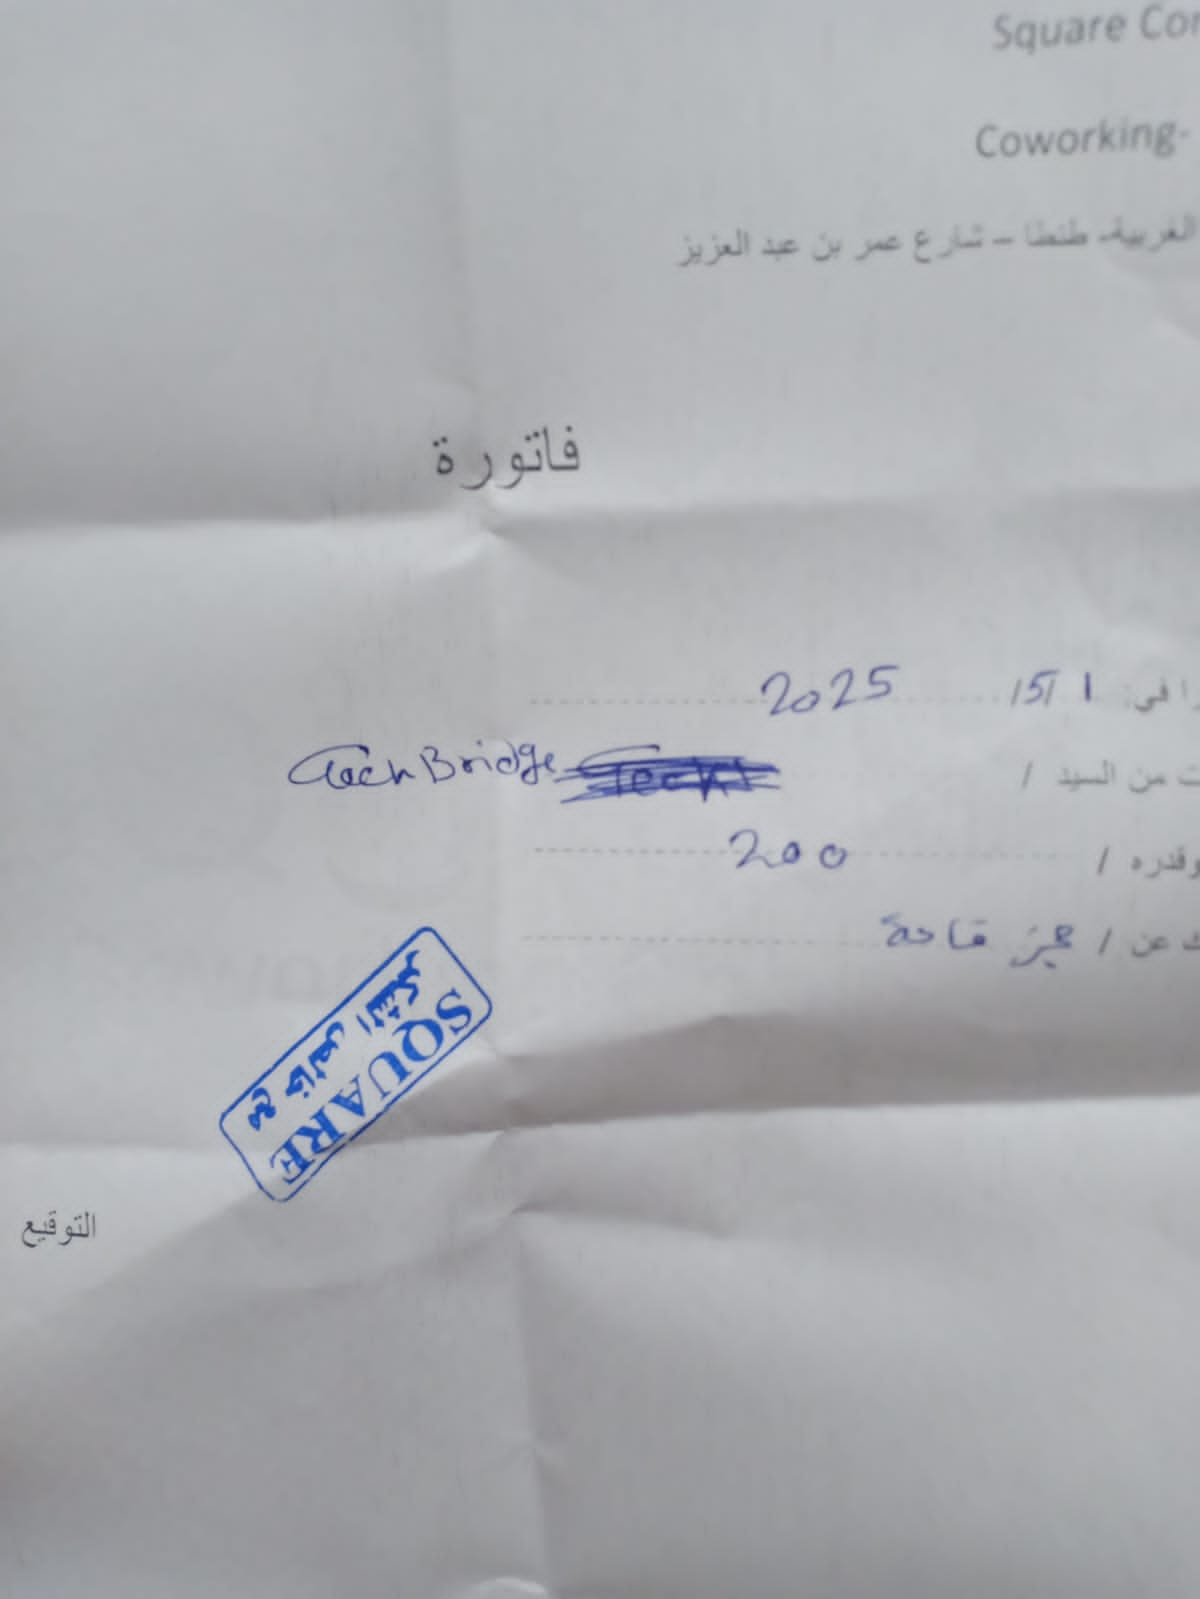 Square
Coworking-
الغربية- طنطا – شارع عمر بن عبد العزيز
فاتورة
في: 1 /5/ 2025
من السيد / TechBridge
وقدره / 200
عن / حجز قاعة
SQUARE
مع خالص الشكر
التوقيع